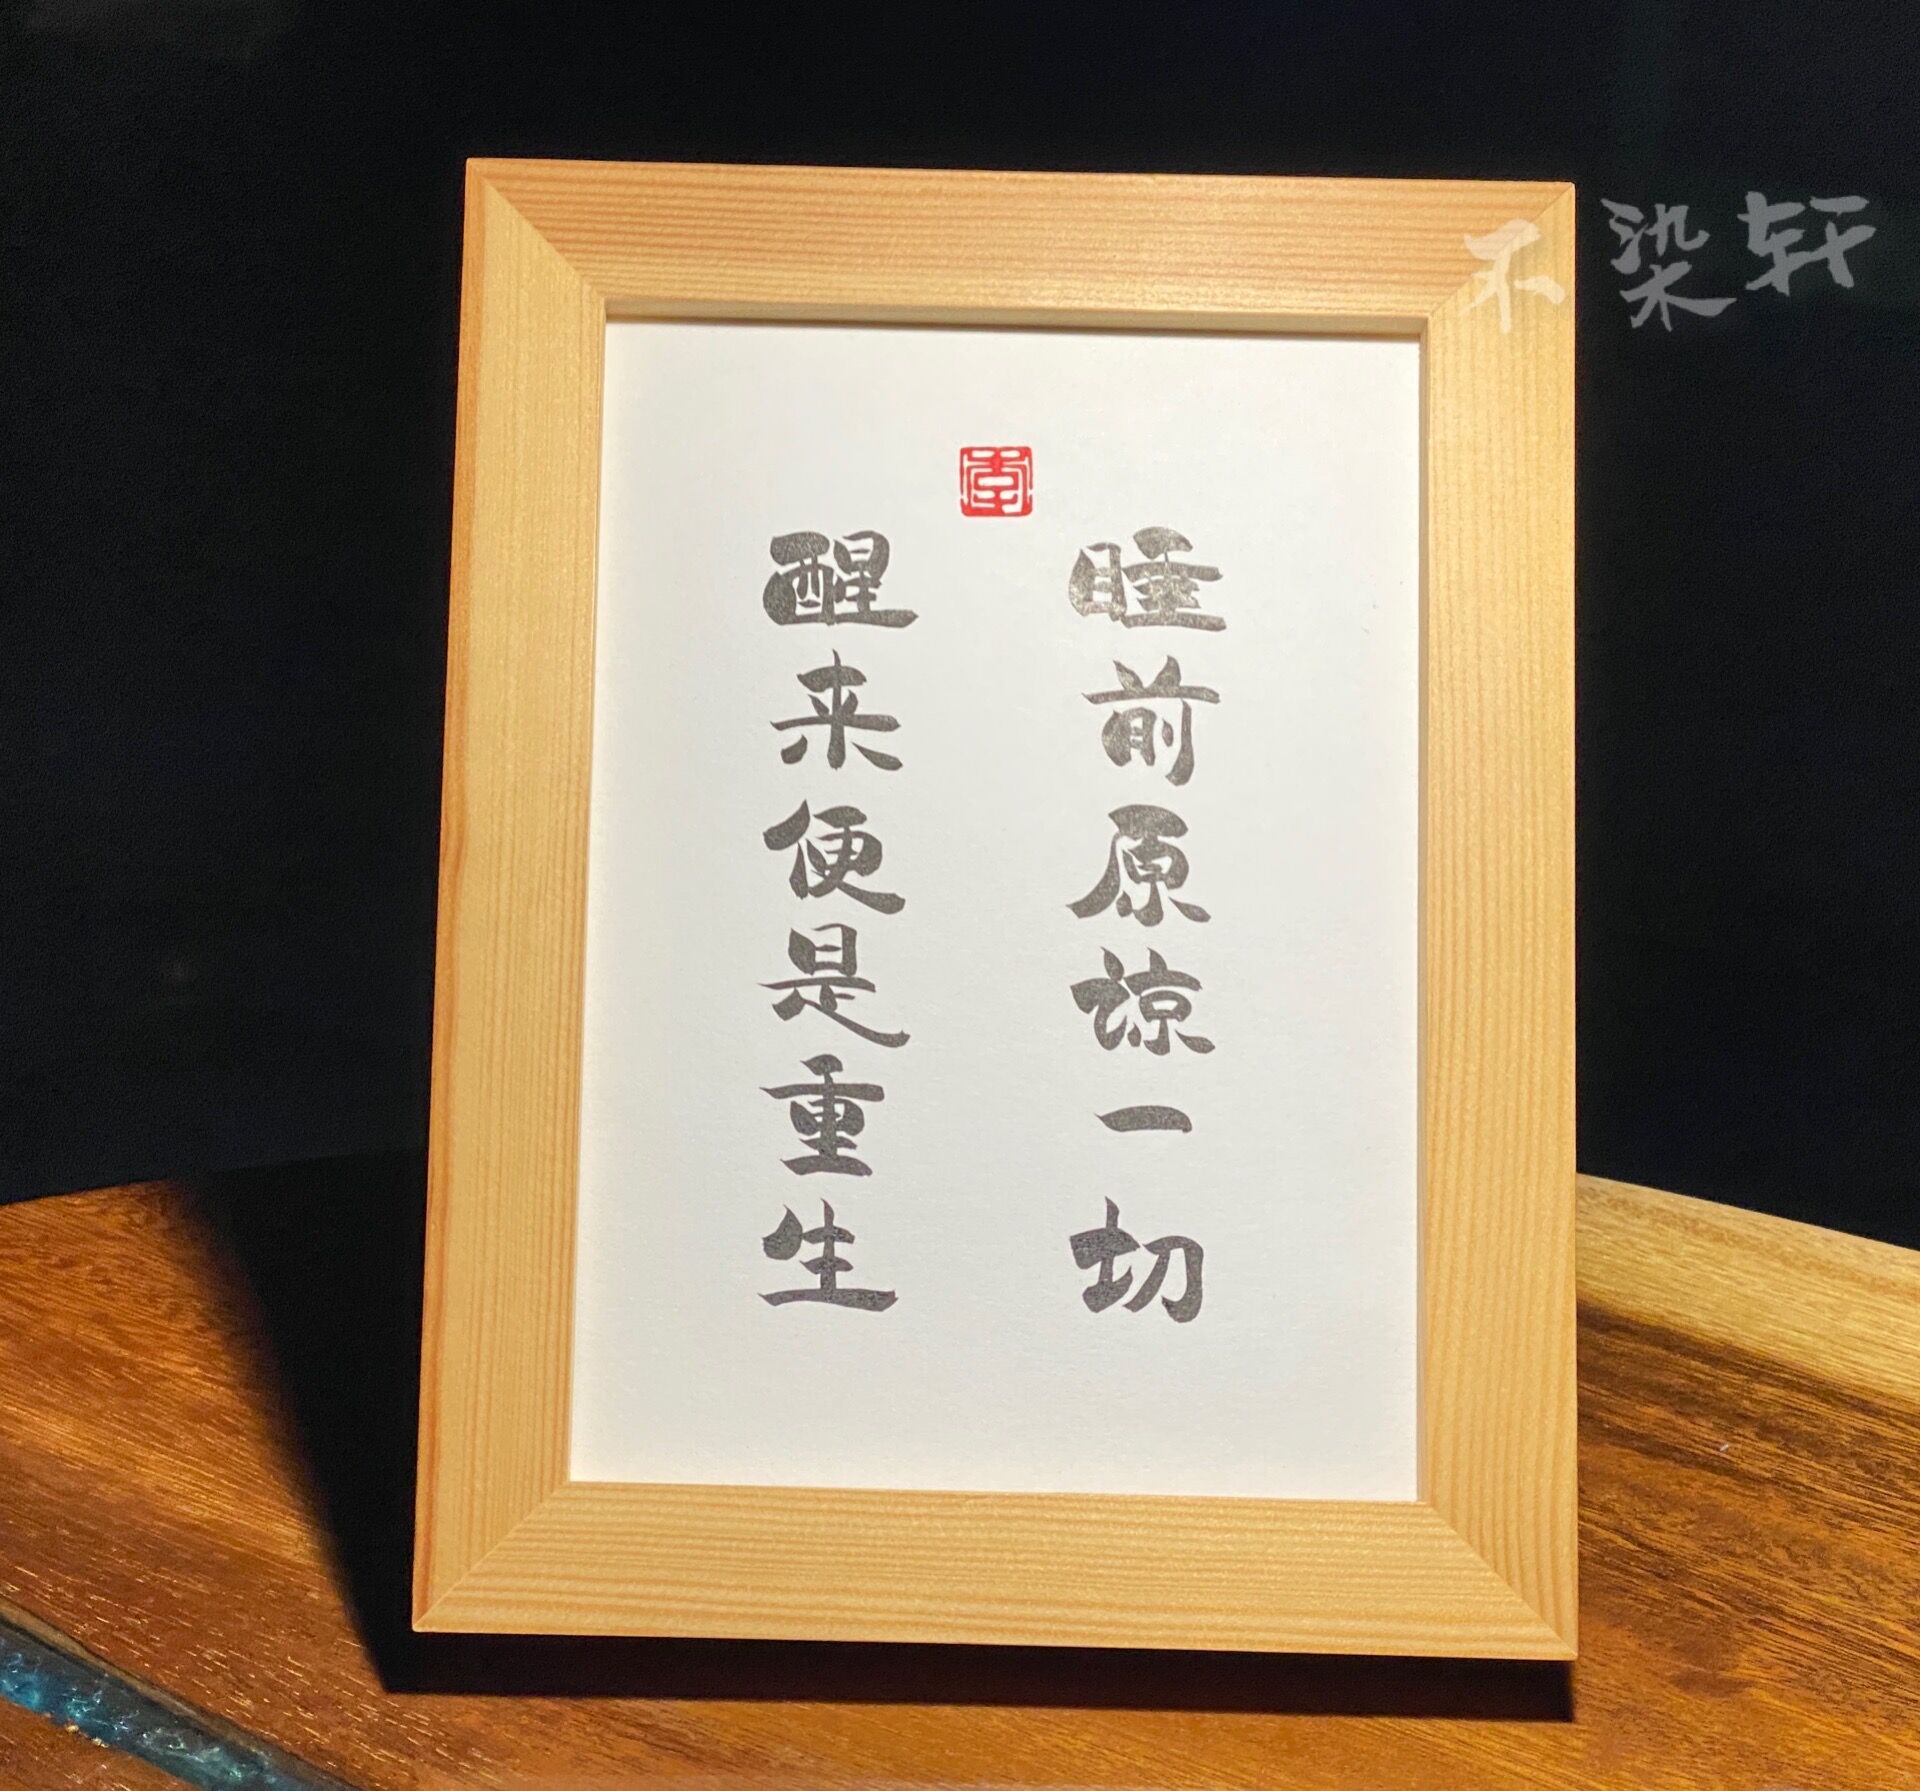 睡前原谅一切
醒来便是重生
不染轩